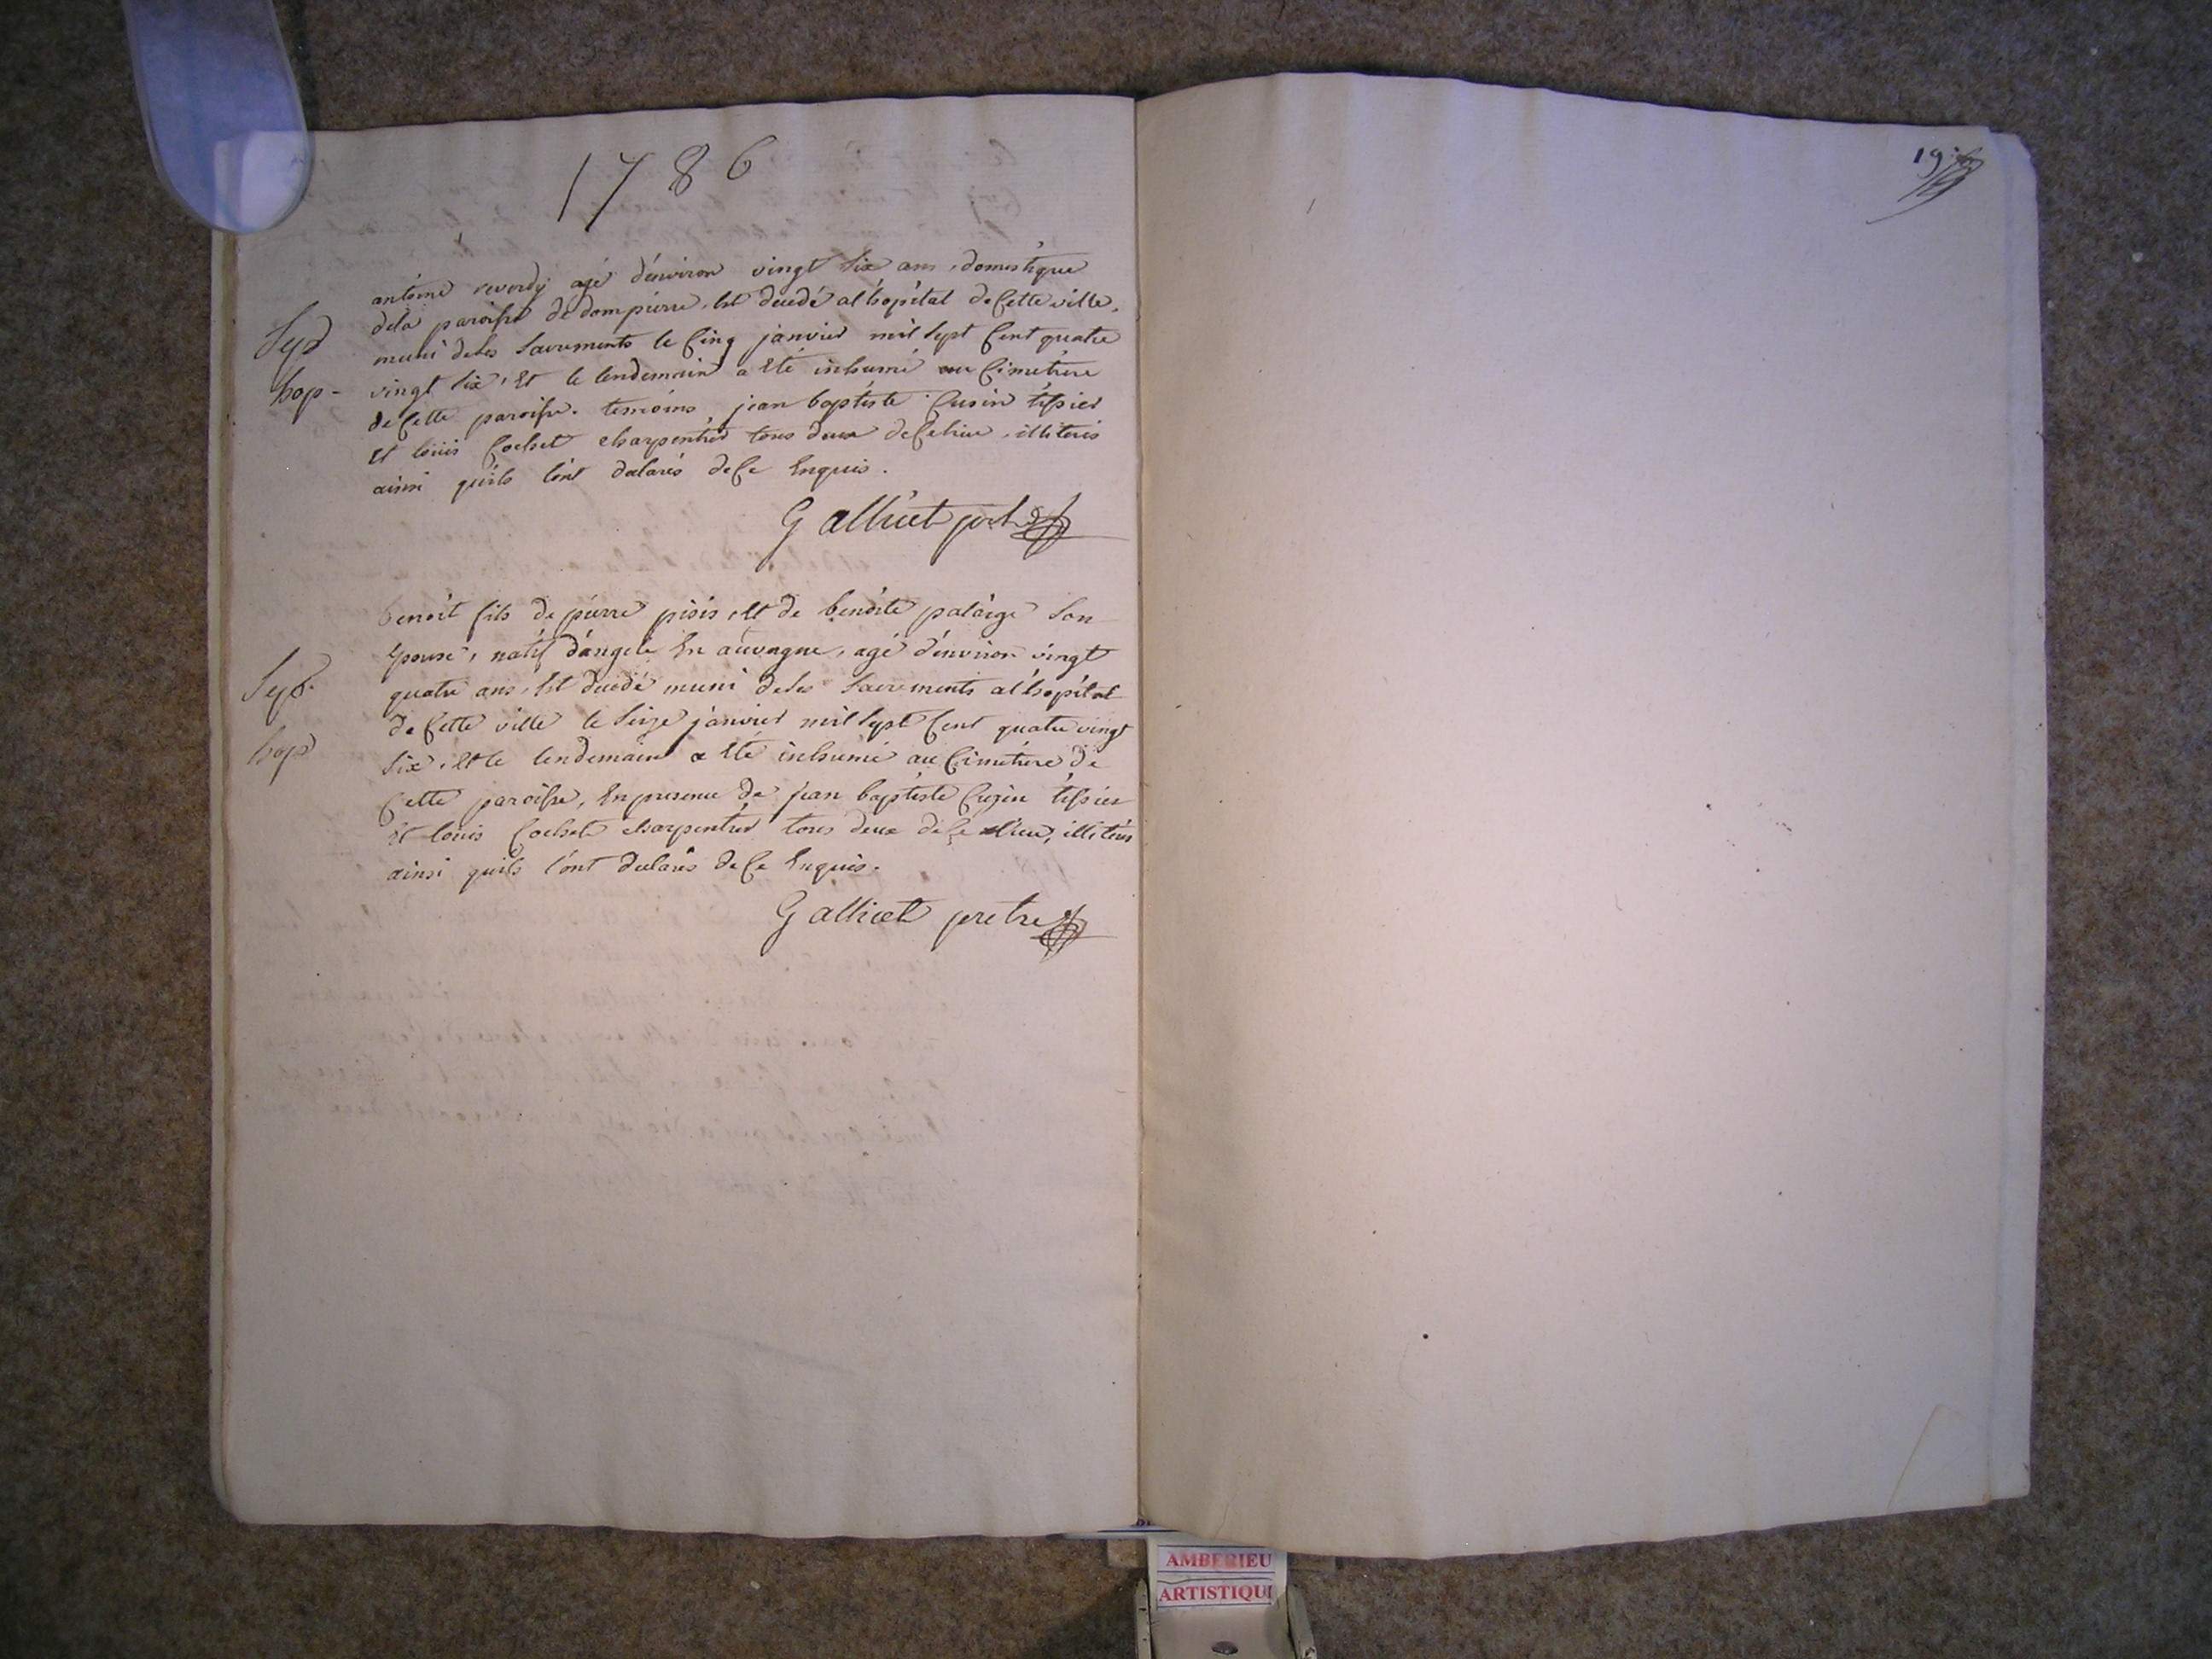 1786
antoine reverdy agé d'environ vingt six ans, domestique
dela paroisse de dompierre, est decedé al'hopital de cette ville,
Sep
muni deses sacrements le cinq janvier mil sept cent quatre
hop -
vingt six, et le lendemain a eté inhumé au cimetiere
de cette paroisse. temoins jean baptiste cusin tissier
et louis cochet charpentier tous deux de ce lieu, illiterés
ainsi qu'ils l'ont declarés de ce enquis.
Galliet prtre
benoit fils de pierre pisis, et de benoite palaige son
epouse, natif d'angele en auvagne, agé d'environ vingt
Sep.
quatre ans, est decedé muni deses sacrements al'hopital
de cette ville le seize janvier mil sept cent quatre vingt
hop
six, et le lendemain a eté inhumé au cimetiere de
cette paroisse, en presence de jean baptiste cuzin tissier
et louis cochet charpentier tous deux de ce lieu, illiterés
ainsi qu'ils l'ont declarés de ce enquis.
Galliet pretre
19
AMBERIEU
ARTISTIQU